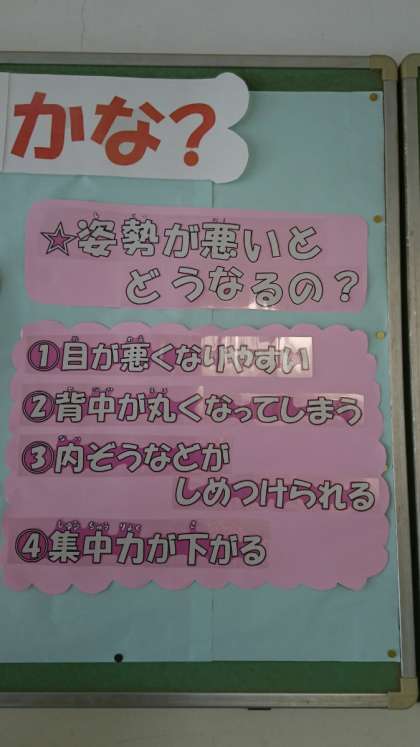 かな?
☆姿勢が悪いと
どうなるの?
①目が悪くなりやすい
②背中が丸くなってしまう
③内ぞうなどが
しめつけられる
④集中力が下がる